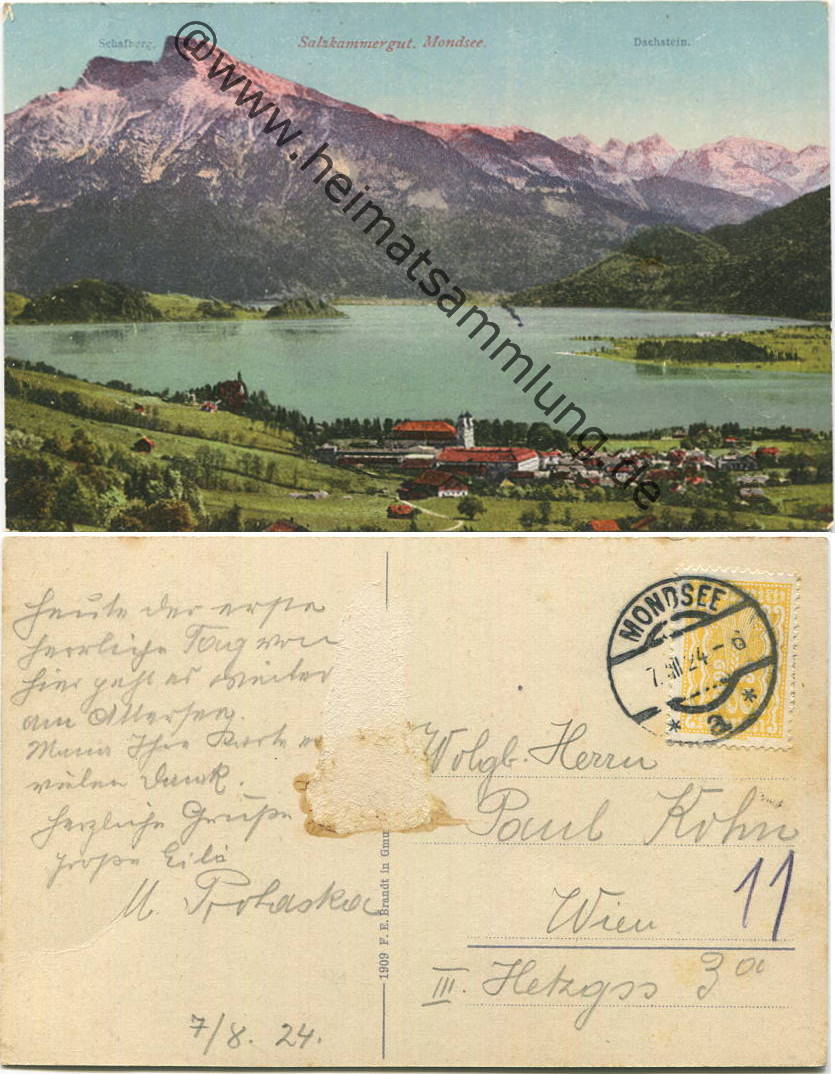 Schafberg.
Salzkammergut. Mondsee.
Dachstein.
@www.heimatsammlung.de
Heute der erste
herrliche Tag von
hier geht es weiter
am Attersee.
Ihre Karte
vielen Dank.
Herzliche Grüße
große Eile
M. Prohaska
7/8. 24.
1909 F. E. Brandt in Gmu
MONDSEE
7.VIII.24-6
* a *
Wolgb. Herrn
Paul Kohn
Wien
11
III. Hetzgss 30a